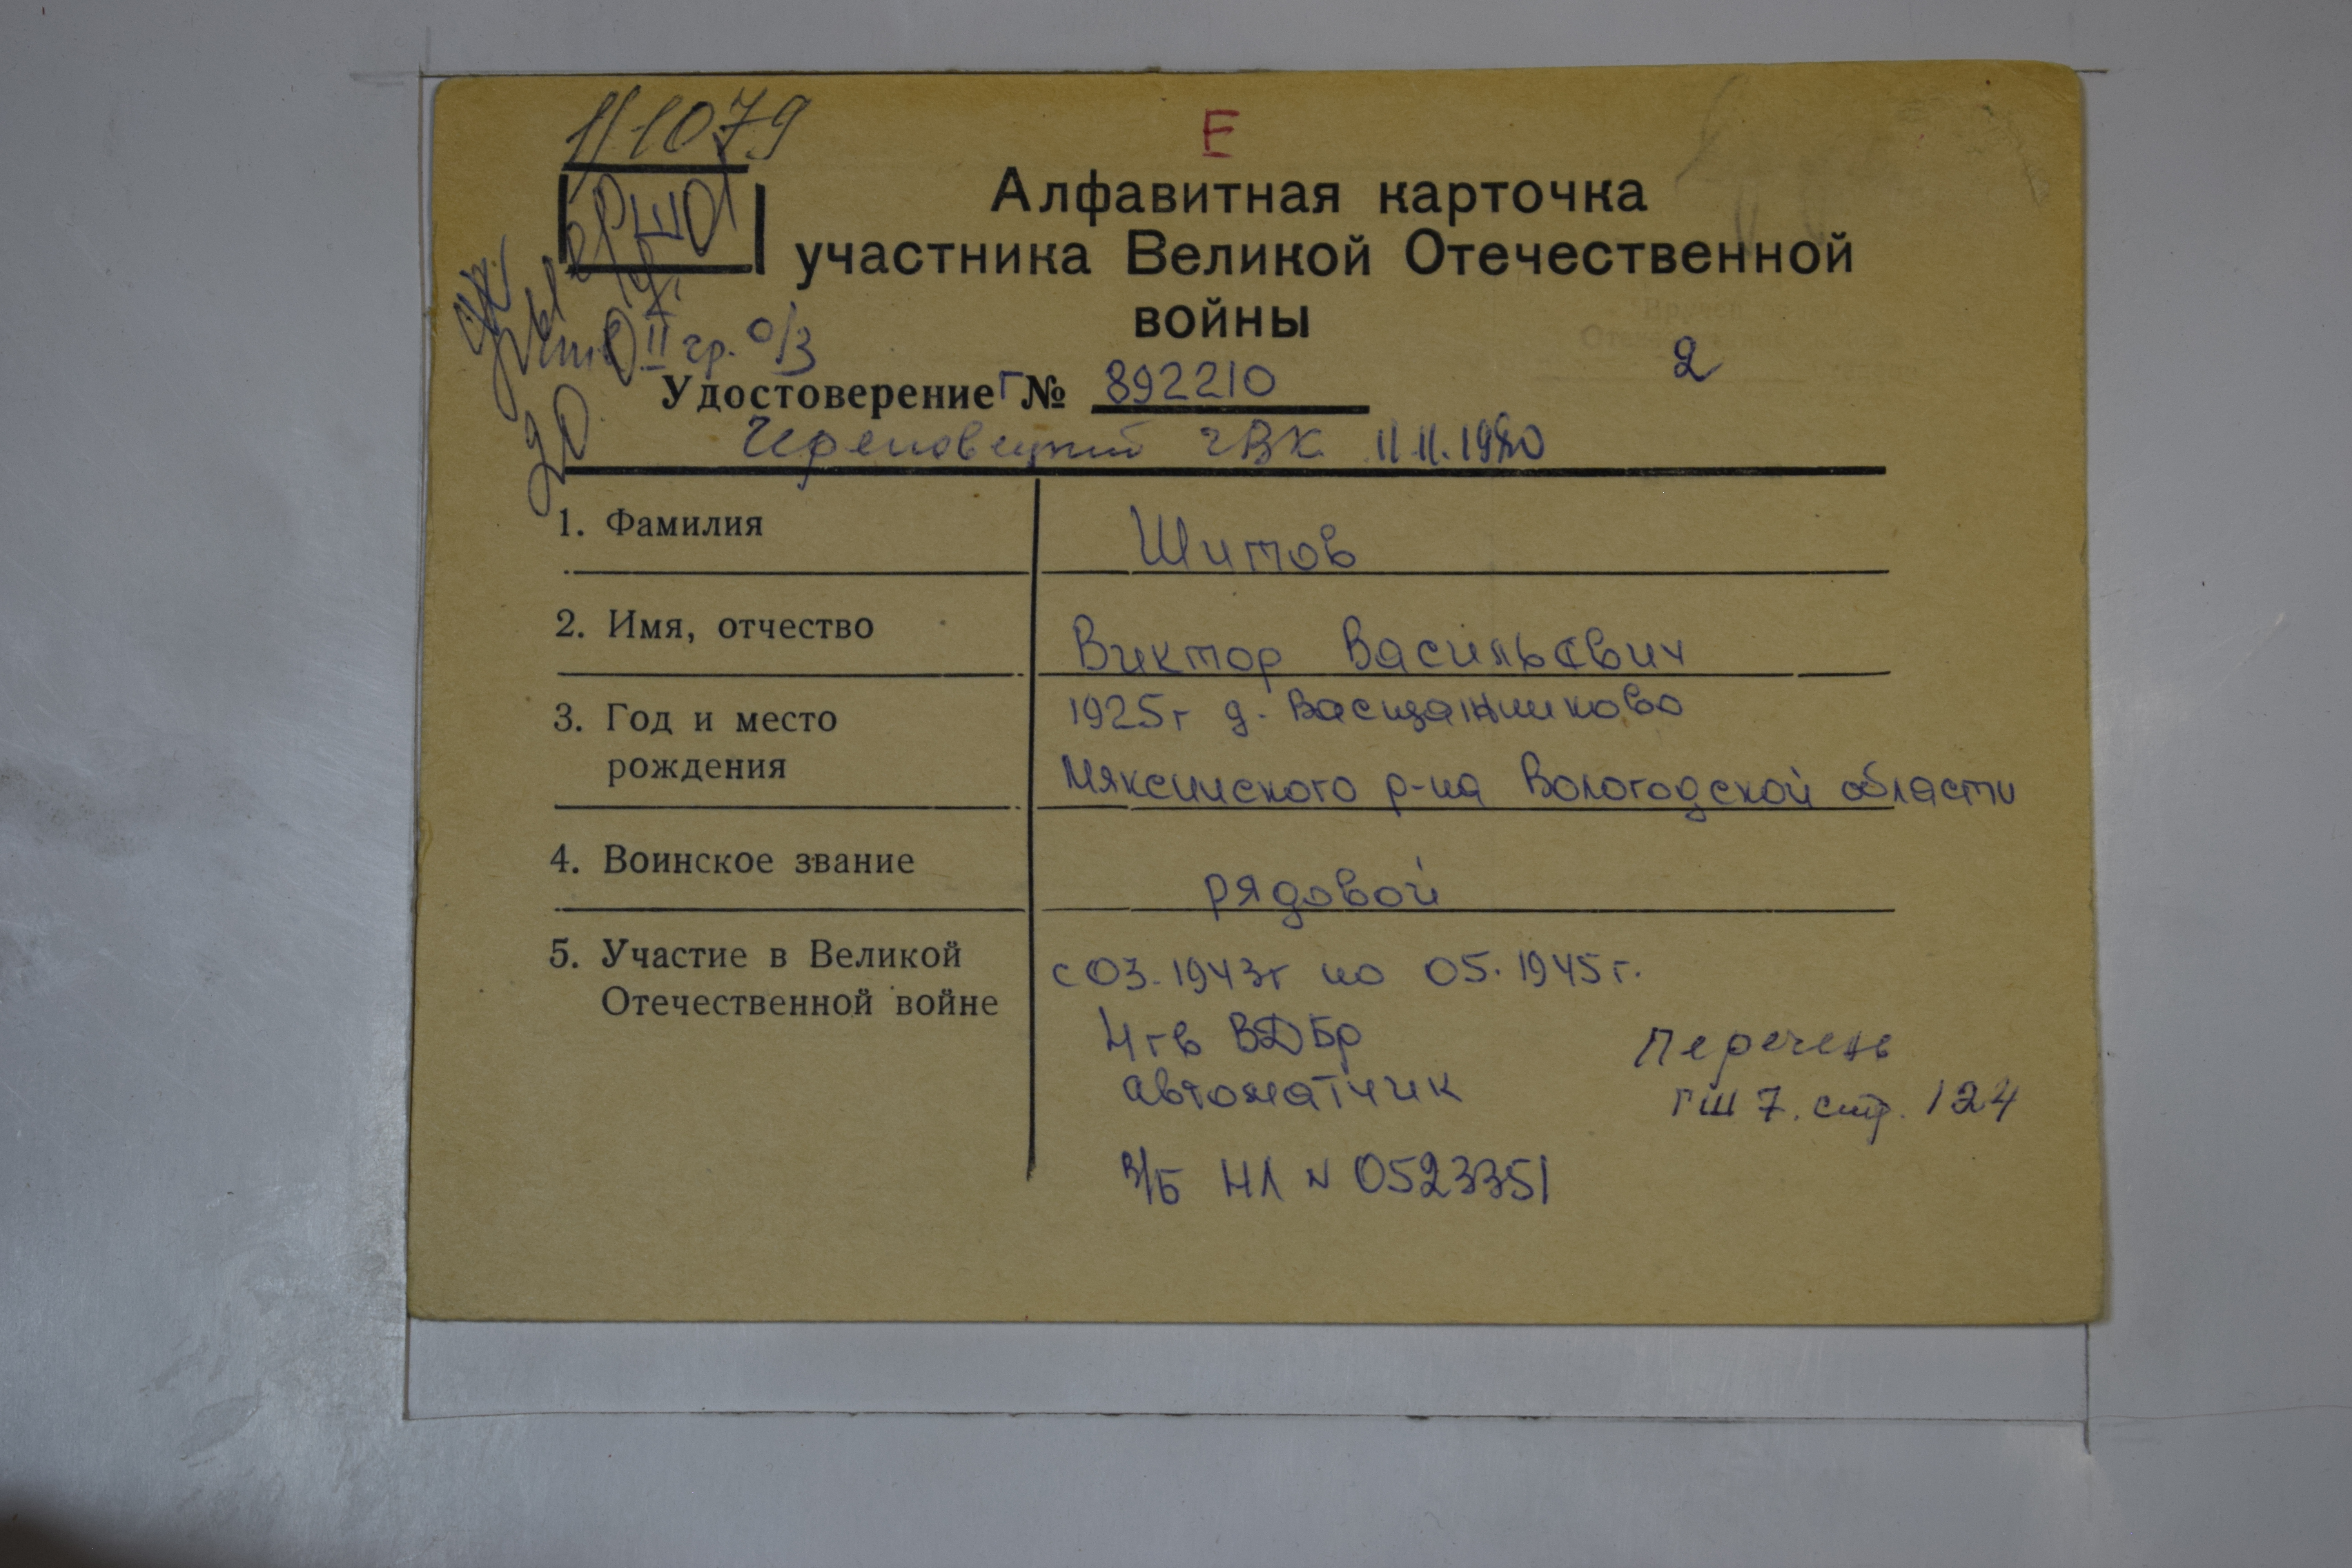 111079
Е
Алфавитная карточка
участника Великой Отечественной
войны
II гр. о/з
2
Удостоверение Г № 892210
Череповецкий ГВК 11.11.1980
1. Фамилия
Шитов
2. Имя, отчество
Виктор Васильевич
3. Год и место
рождения
1925г д.
Мяксинского р-на Вологодской области
4. Воинское звание
рядовой
5. Участие в Великой
Отечественной войне
с 03.1943г по 05.1945г.
4 гв ВДБр
автоматчик
Перечень
ГШ 7. стр. 124
в/б НЛ N 0523351